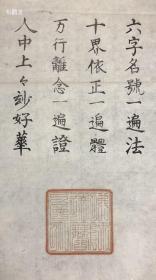 六字名號一遍法
十界依正一遍體
万行離念一遍證
人中上々妙好華